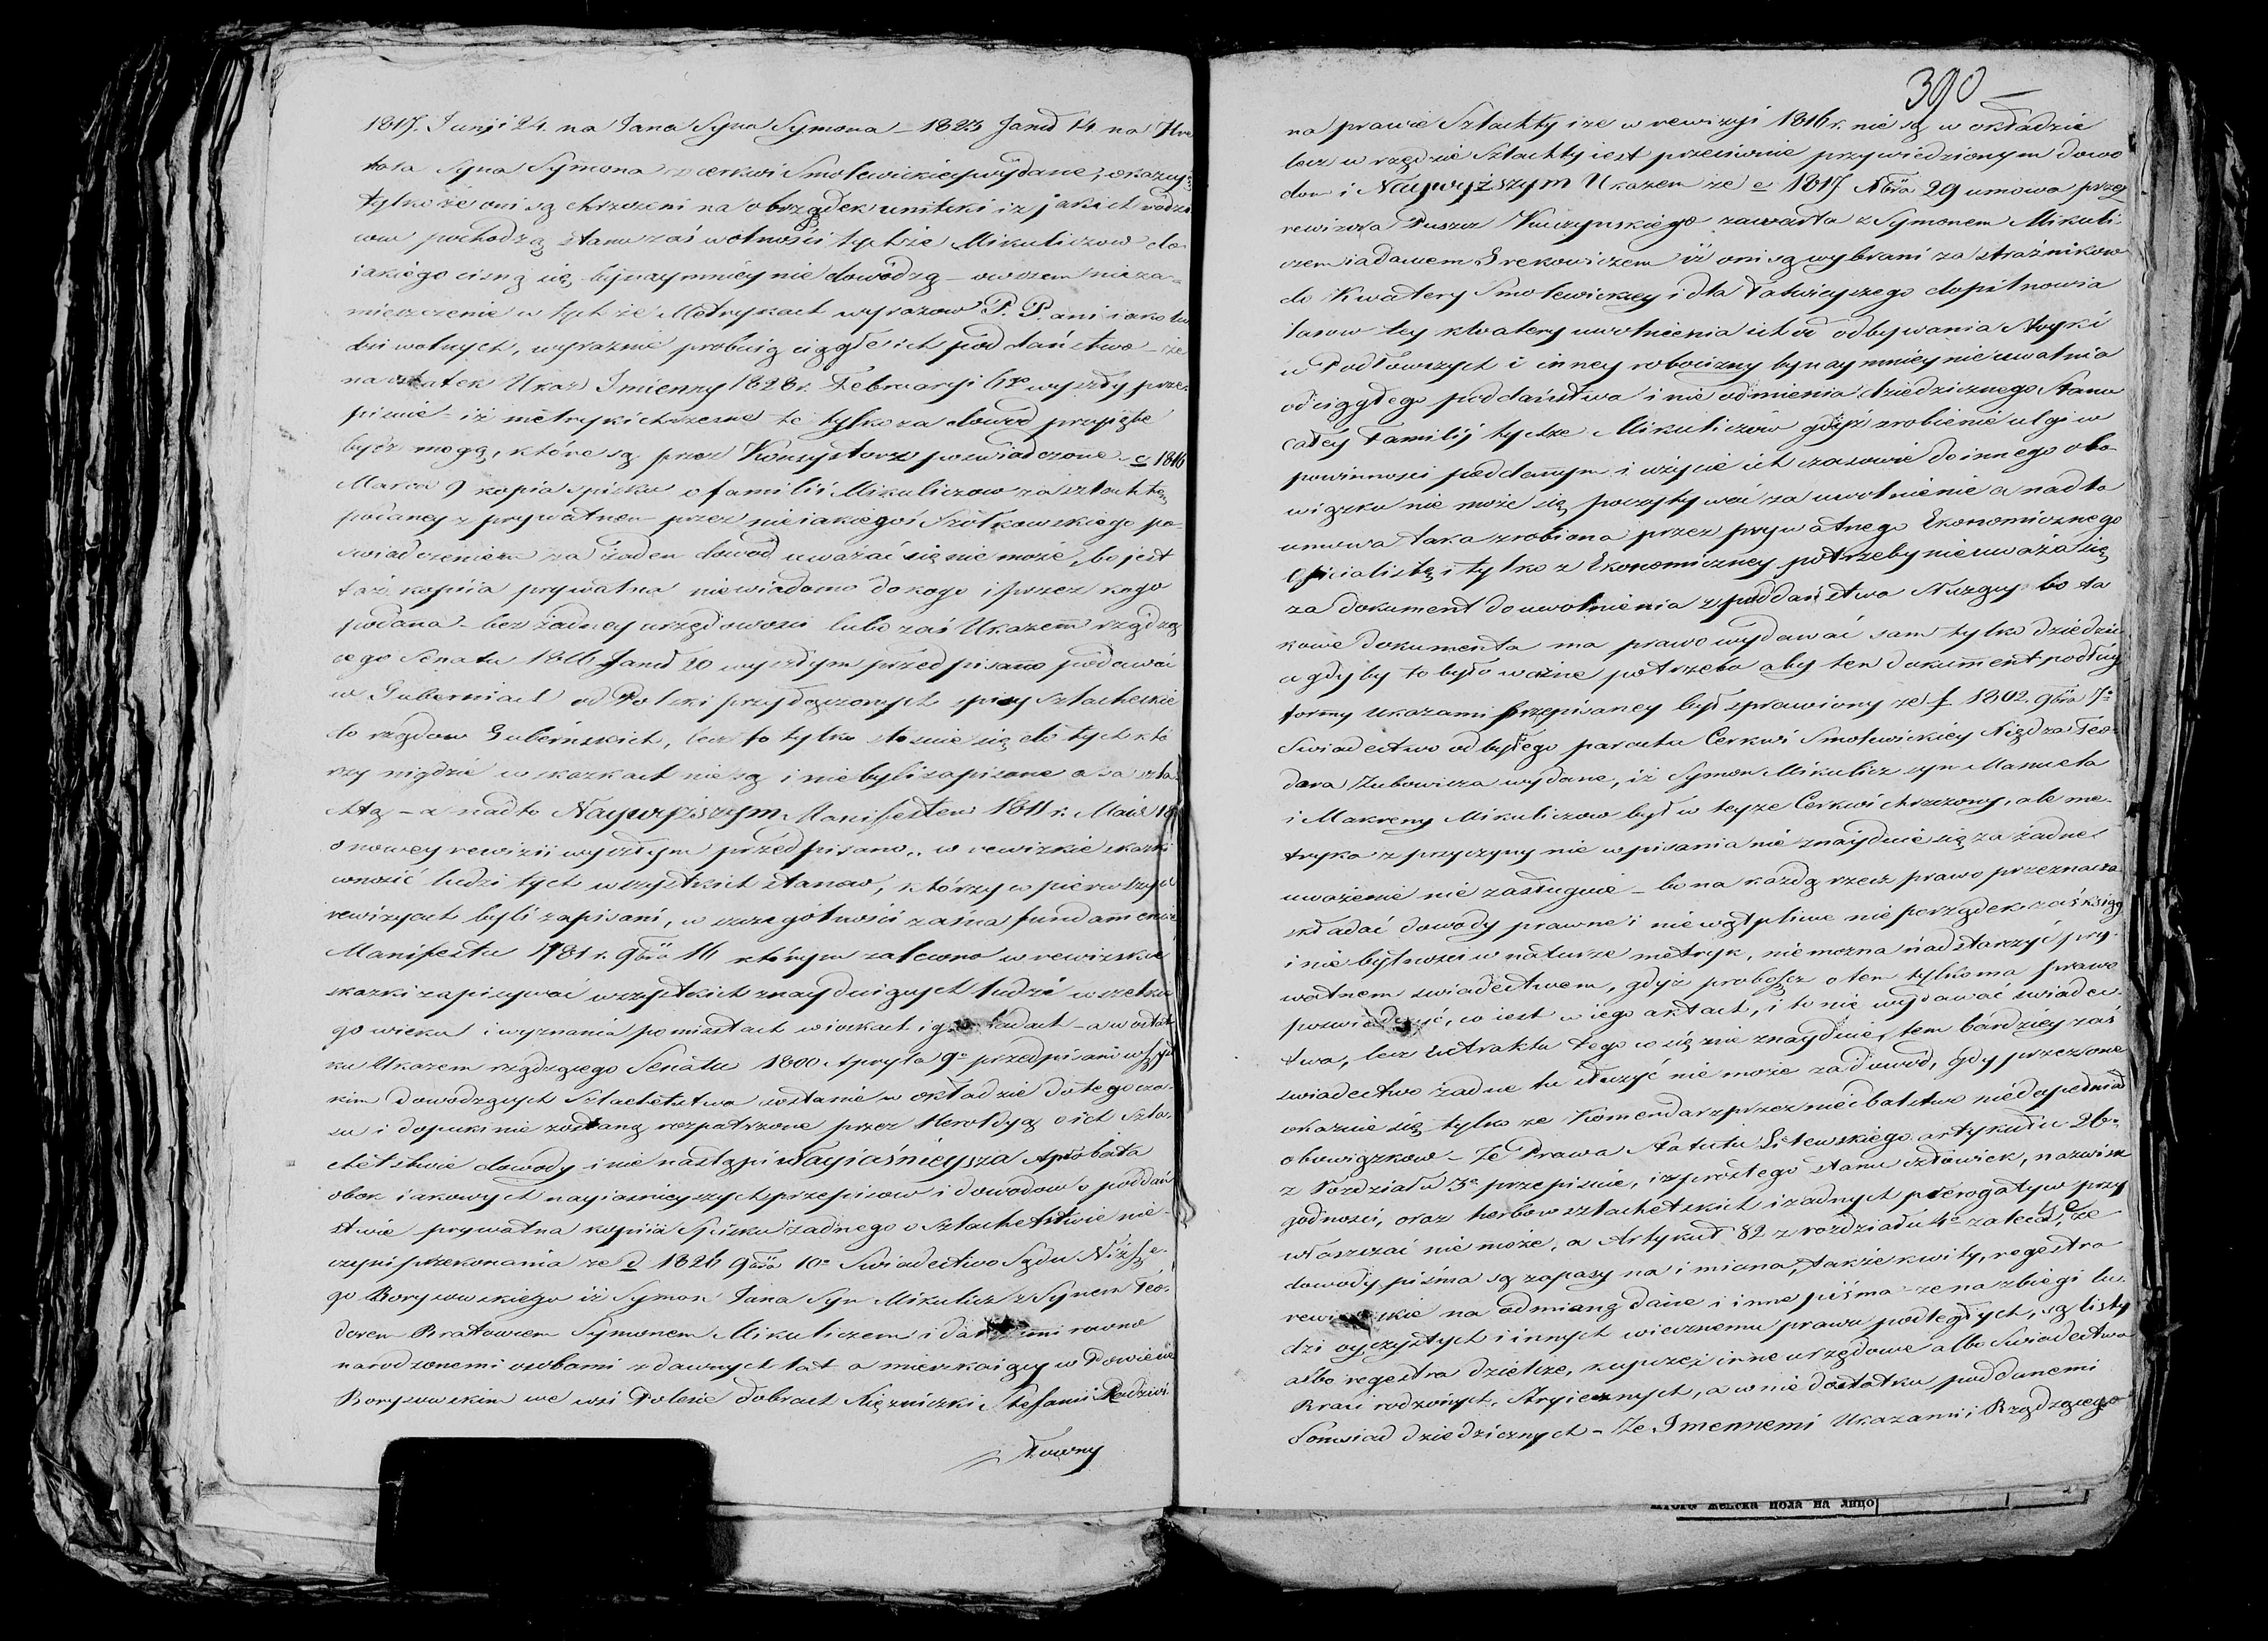 1817. Junij 24. na Jana Syna Symona – 1823 Janu 14. na
tola syna Symona z cerkwi Smolewickiey wydane, okazują
tylko że oni są chrzczeni na obrządek unitski i z jakich rodzi
cow pochodzą stanu zaś wolności tychże Mikuliczow do
iakiego cisną się bynaymniey nie dowodzą – owszem nieza-
mieszczenie w tychże Metrykach wyrazow P. P. ani iako lu
dzi wolnych, wyraźnie probuią ciągłe ich poddaństwo – że
na ostatek Ukaz Imienny 1828 r. Februaryi 6go wyszły prze
pisuie – iż metryki chrzesne te tylko za dowod przyięte
bydź mogą, które są przez Konsystorz poswiadczone – c 1816
Marca 9 kopia spisku o familii Mikuliczow za szlachtę
podaney z prywatnem przez nieiakiegoś Szołkowskiego po-
swiadczeniem za żaden dowod uważać się nie może, bo jest
taż kopiia prywatna niewiadomo do kogo i przez kogo
podana – bez żadney urzędowości lubo zaś Ukazem rządzą
cego Senatu 1816 Janu 20 wyszłym przedpisano podawać
w Guberniach od Polski przyłączonych spisy szlacheckie
do rządow Gubernskich, lecz to tylko stosuie się do tych któ
rzy nigdzie w skazkach nie są i niebyli zapisane a za szla
chtą – a nadto Naywyższym Manifestem 1811 r. Maia 18
o nowey rewizii wyszłym przedpisano, w rewizkie skazki
wnosić ludzi tych wszystkich stanow, którzy w pierwszych
rewizyach byli zapisani, w szczegulności zaś na fundamencie
Manifestu 1781 r. 9bra 16 którym zalecono w rewizskie
skazki zapisywać wszystkich znayduiących ludzi wszelkie
go wieku i wyznania po miastach wioskach i – a w ostat
ku Ukazem rządzącego Senatu 1800 Apryla 9o przedpisano wszyst
kim dowodzącym Szlachetstwa zostanie w okładzie do tego cza-
su i dopuki nie zostaną rozpatrzone przez Heroldyą o ich Szla-
chetstwie dowody i nie nastąpi Nayiaśnieysza Aprobata
obok iakowych nayiasnieyszych przepisow i dowodow o poddań
stwie prywatna kopiia Spisku żadnego o Szlachetstwie nie
czyni przekonania ze d 1826 9bra 10o Swiadectwo Sądu Niższe-
go Borysowskiego iż Symon Jana Syn Mikulicz z Synem Teo-
dorem Bratowcem Symonem Mikuliczem i innemi rowno
narodzonemi osobami z dawnych lat a mieszkaiący w Powiecie
Borysowskim we wsi Polesie dobrach Xiężniczki Stefanii Radziwi
łłowny
390
na prawie Szlachty i że w rewizyi 1816 r. nie są w okładzie
lecz w rzędzie Szlachty iest przeciwnie przywiedzionym dowo
dom i Naywyższym Ukazem ze e 1817 Nbra 29 umowa przez
rewizora Puszcz Kuczynskiego zawarta z Symonem Mikuli
czem i Adamem Grekowiczem iż oni są wybrani za strażnikow
do Kwatery Smolewickiey i dla łatwieyszego dopilnowania
lasow tey kwatery uwolnienia ich od odbywania Stoyki
w Podłowczych i inney robocizny bynaymniey nie uwalnia
od ciągłego poddaństwa i nie odmienia dziedzicznego Stanu
całey Familij tychże Mikuliczow gdyż zrobienie ulgi w
powinności poddanym i użycie ich czasowie do innego obo
wiązku nie może się poczytywać za uwolnienie a nadto
umowa taka zrobiona przez prywatnego Ekonomicznego
Oficialistę i tylko z Ekonomiczney potrzeby nie uważa się
za dokument do uwolnienia z poddaństwa Służący bo ta
kowe dokumenta ma prawo wydawać sam tylko dziedzic
a gdyby to było ważne potrzeba aby ten dokument podług
formy Ukazami przepisaney był sprawiony ze f 1802. 9bra 7o
Swiadectwo od byłego parocha Cerkwi Smolewickiey Xiędza Teo-
dora Zubowicza wydane, iż Symon Mikulicz syn Manuela
i Makreny Mikuliczow był w teyże Cerkwi chrzczony, ale me-
tryka z przyczyny nie wpisania nie znayduie się za żadne
uważenie nie zasługuie – bo na każdą rzecz prawo przeznacza
składać dowody prawne i niewątpliwe nieporządek zaś ksiąg
i nie bytności w naturze metryk, nie można nadstarczyć pry-
watnem swiadectwem, gdyż proboszcz o tem tylko ma prawo
poswiadczyć, co iest w iego aktach, i to nie wydawać świadec-
twa, lecz Extraktu tego co się nie znayduie, tem bardziey zaś
swiadectwo żadne tu służyć nie może za dowod, gdy przez one
okazuie się tylko ze Komendarz przez niedbalstwo niedopełniał
obowiązkow – Ze Prawa Statutu Litewskiego artykułu 26o
z Rozdziału 3o przepisuie, iż prostego stanu człowiek, nazwisk
godności, oraz herbow szlachetskich i żadnych prerogatyw przy
właszczać nie może, a Artykuł 82 z rozdziału 4o zaleca, że
dowody piśma są zapasy na imiona, także kwity, regestra
rewizskie na odmianę dane i inne piśma – ze na zbiegi lu-
dzi oyczystych i innych wiecznemu prawu podległych, są listy
albo regestra dzielcze, kupczej inne urzędowe albo Swiadectwa
Braci rodzonych, Stryiecznych, a w niedostatku poddanemi
Somsiad dziedzicznych – Ze Imennemi Ukazami i Rządzącego
женска пола на лицо